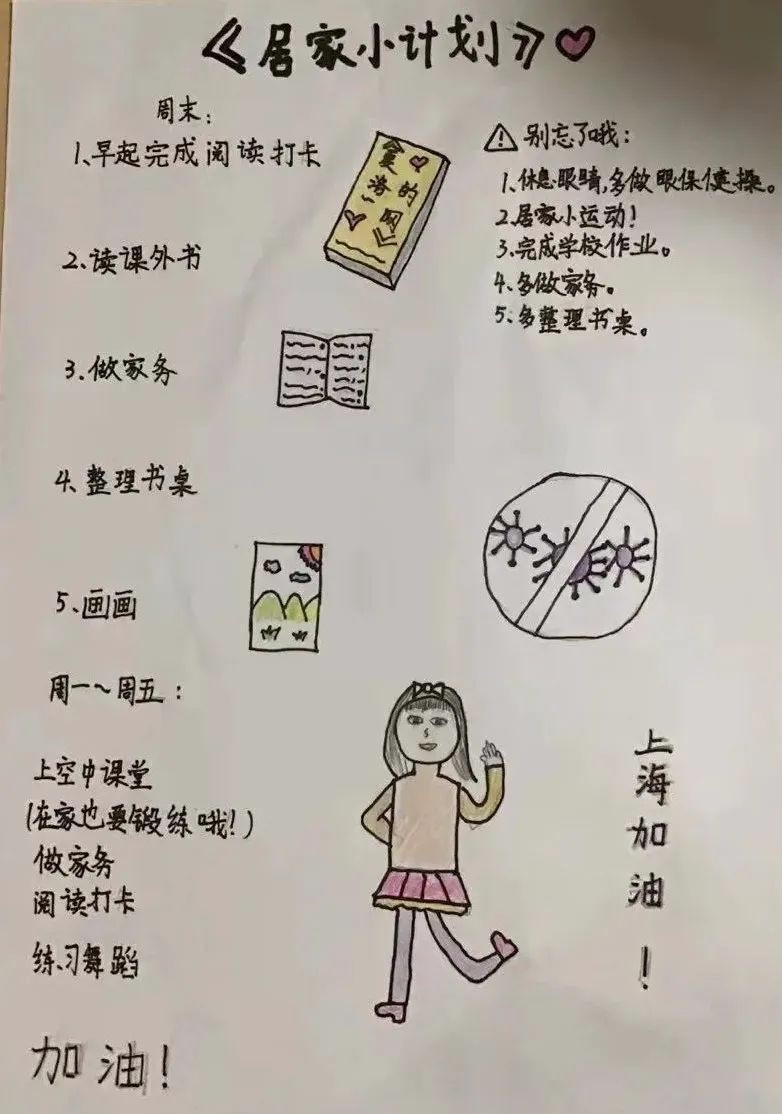 《居家小计划》
周末：
1、早起完成阅读打卡
2、读课外书
3、做家务
4、整理书桌
5、画画
夏洛的网
别忘了哦：
1、休息眼睛，多做眼保健操。
2、居家小运动！
3、完成学校作业。
4、多做家务。
5、多整理书桌。
周一～周五：
上空中课堂
(在家也要锻练哦！)
做家务
阅读打卡
练习舞蹈
加油！
上海加油！